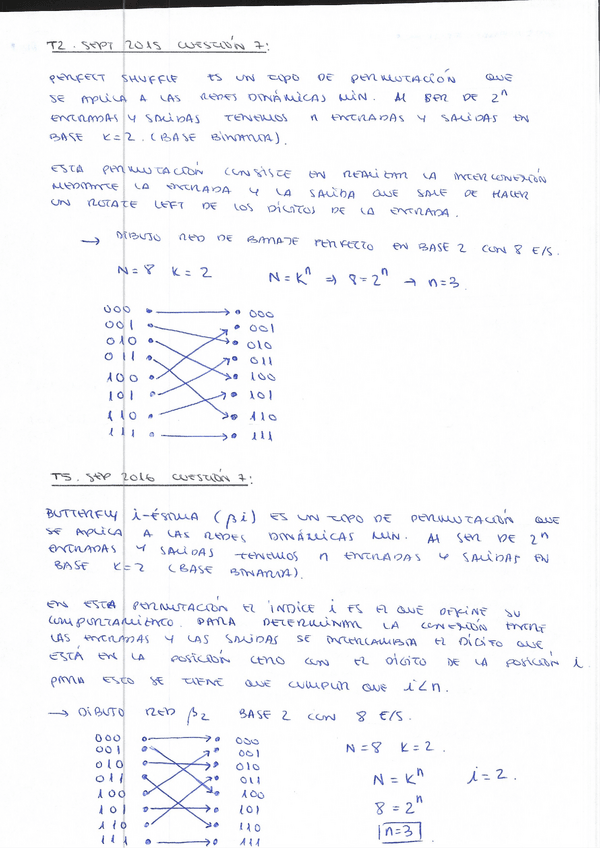 T2. SEPT 2015 CUESTIÓN 7:
PERFECT SHUFFLE ES UN TIPO DE PERMUTACIÓN QUE
SE APLICA A LAS REDES DINÁMICAS MIN. Al SER DE 2^n
ENTRADAS Y SALIDAS TENEMOS n ENTRADAS Y SALIDAS EN
BASE K=2. (BASE BINARIA).
ESTA PERMUTACIÓN CONSISTE EN REALIZAR LA INTERCONEXIÓN
MEDIANTE LA ENTRADA Y LA SALIDA QUE SALE DE HACER
UN ROTATE LEFT DE LOS DÍGITOS DE LA ENTRADA.
→ DIBUJO RED DE BARAJE PERFECTO EN BASE 2 CON 8 E/S.
N=8 K=2 N=K^n ⇒ 8=2^n → n=3
000 000
001 001
010 010
011 011
100 100
101 101
110 110
111 111
T5. SEP 2016 CUESTIÓN 7:
BUTTERFLY i-ÉSIMA (βi) ES UN TIPO DE PERMUTACIÓN QUE
SE APLICA A LAS REDES DINÁMICAS MIN. Al SER DE 2^n
ENTRADAS Y SALIDAS TENEMOS n ENTRADAS Y SALIDAS EN
BASE K=2 (BASE BINARIA).
EN ESTA PERMUTACIÓN EL INDICE i ES EL QUE DEFINE SU
COMPORTAMIENTO. PARA DETERMINAR LA CONEXIÓN ENTRE
LAS ENTRADAS Y LAS SALIDAS SE INTERCAMBIA EL DÍGITO QUE
ESTÁ EN LA POSICIÓN CERO CON EL DÍGITO DE LA POSICIÓN i.
PARA ESTO SE TIENE QUE CUMPLIR QUE i<n.
→ DIBUJO RED β2 BASE 2 CON 8 E/S.
000 000
001 001
010 010
011 011
100 100
101 101
110 110
111 111
N=8 K=2.
N=K^n i=2.
8=2^n
n=3